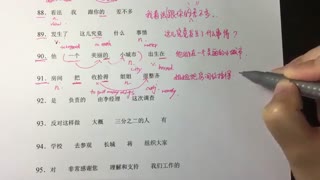 88. 看法 我 跟你的 差不多 我看法跟你的差不多。
89. 发生了 这儿究竟 什么 事情 这儿究竟发生了什么事情？
90. 他 一个 美丽的 小城市 出生在 他出生在一个美丽的小城市
91. 房间 把 收拾得 姐姐 很整齐 姐姐把房间收拾得
92. 是 负责的 由李经理 这次调查
93. 反对这样做 大概 三分之二的人 有
94. 学校 去参观 长城 将 组织大家
95. 对 非常感谢您 理解和支持 我们工作的